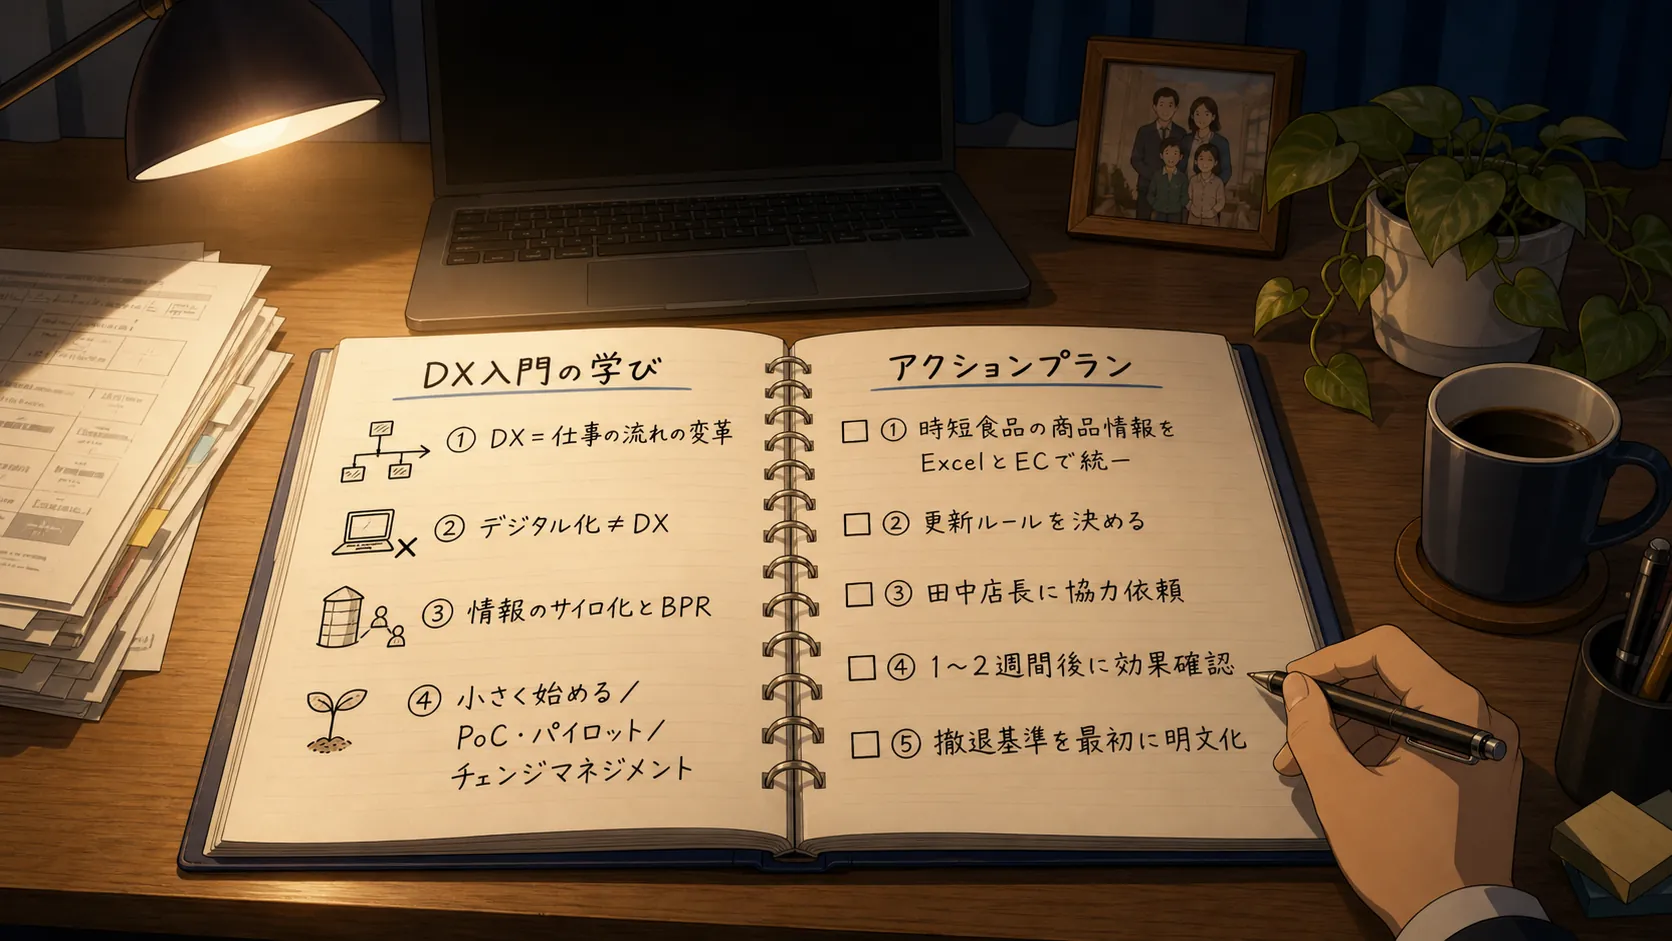 DX入門の学び
① DX=仕事の流れの変革
② デジタル化≠DX
③ 情報のサイロ化とBPR
④ 小さく始める/
PoC・パイロット/
チェンジマネジメント
アクションプラン
① 時短食品の商品情報を
ExcelとECで統一
② 更新ルールを決める
③ 田中店長に協力依頼
④ 1〜2週間後に効果確認
⑤ 撤退基準を最初に明文化